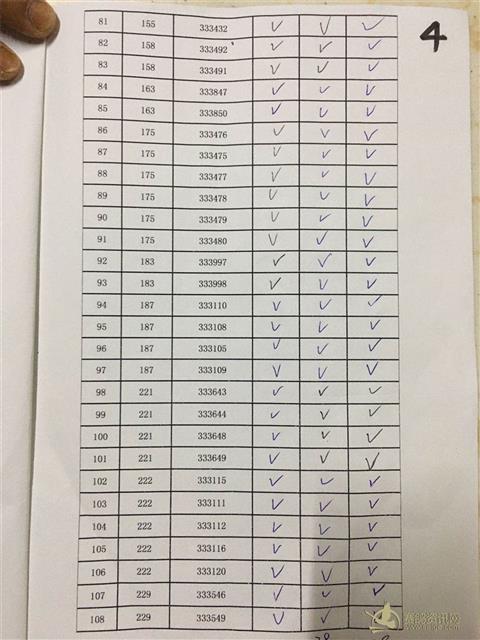 4
81 155 333432 ✓ ✓ ✓
82 158 333492 ✓ ✓ ✓
83 158 333491 ✓ ✓ ✓
84 163 333847 ✓ ✓ ✓
85 163 333850 ✓ ✓ ✓
86 175 333476 ✓ ✓ ✓
87 175 333475 ✓ ✓ ✓
88 175 333477 ✓ ✓ ✓
89 175 333478 ✓ ✓ ✓
90 175 333479 ✓ ✓ ✓
91 175 333480 ✓ ✓ ✓
92 183 333997 ✓ ✓ ✓
93 183 333998 ✓ ✓ ✓
94 187 333110 ✓ ✓ ✓
95 187 333108 ✓ ✓ ✓
96 187 333105 ✓ ✓ ✓
97 187 333109 ✓ ✓ ✓
98 221 333643 ✓ ✓ ✓
99 221 333644 ✓ ✓ ✓
100 221 333648 ✓ ✓ ✓
101 221 333649 ✓ ✓ ✓
102 222 333115 ✓ ✓ ✓
103 222 333111 ✓ ✓ ✓
104 222 333112 ✓ ✓ ✓
105 222 333116 ✓ ✓ ✓
106 222 333120 ✓ ✓ ✓
107 229 333546 ✓ ✓ ✓
108 229 333549 ✓ ✓
赛鸽资讯网